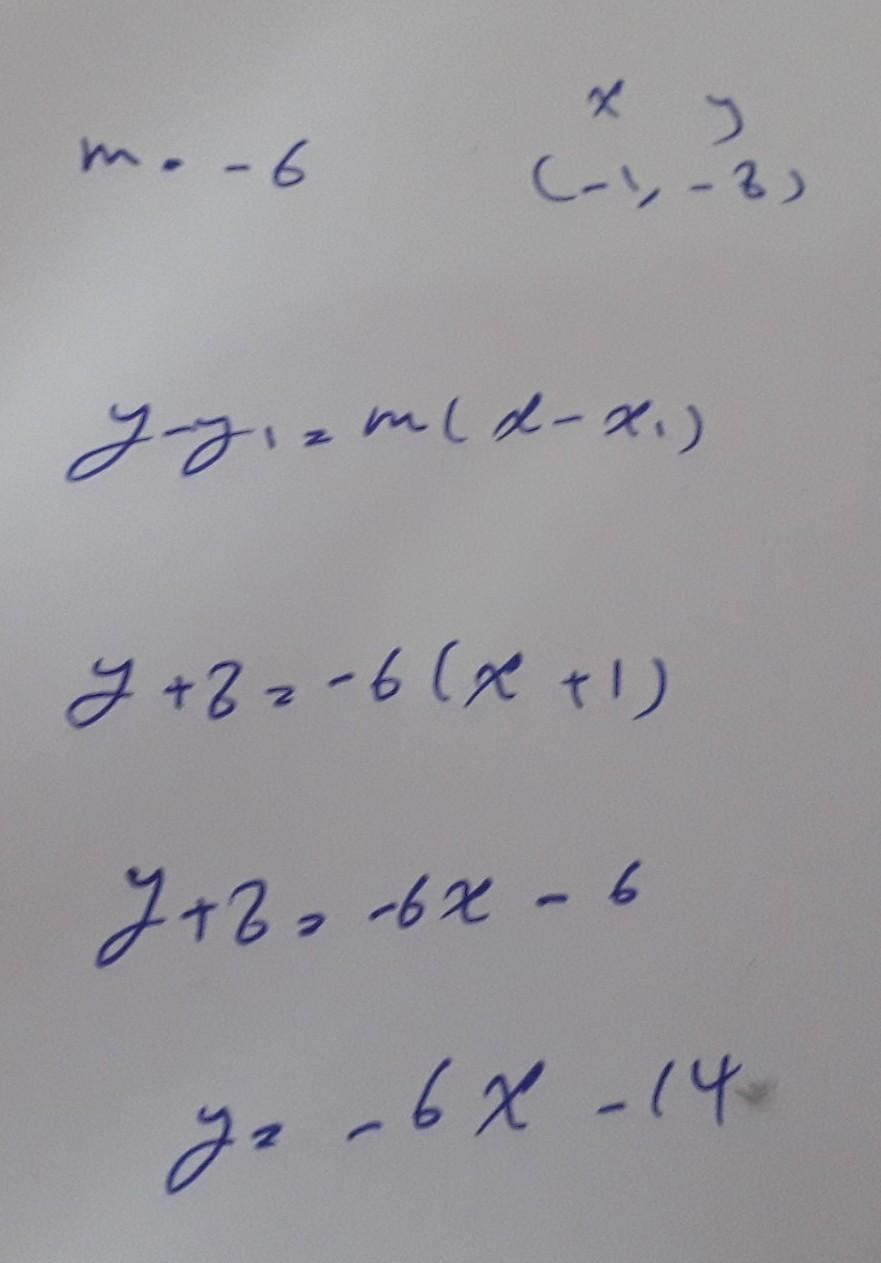 x y
m = -6 (-1, -8)
y-y₁ = m(x-x₁)
y+8 = -6(x+1)
y+8 = -6x - 6
y = -6x -14